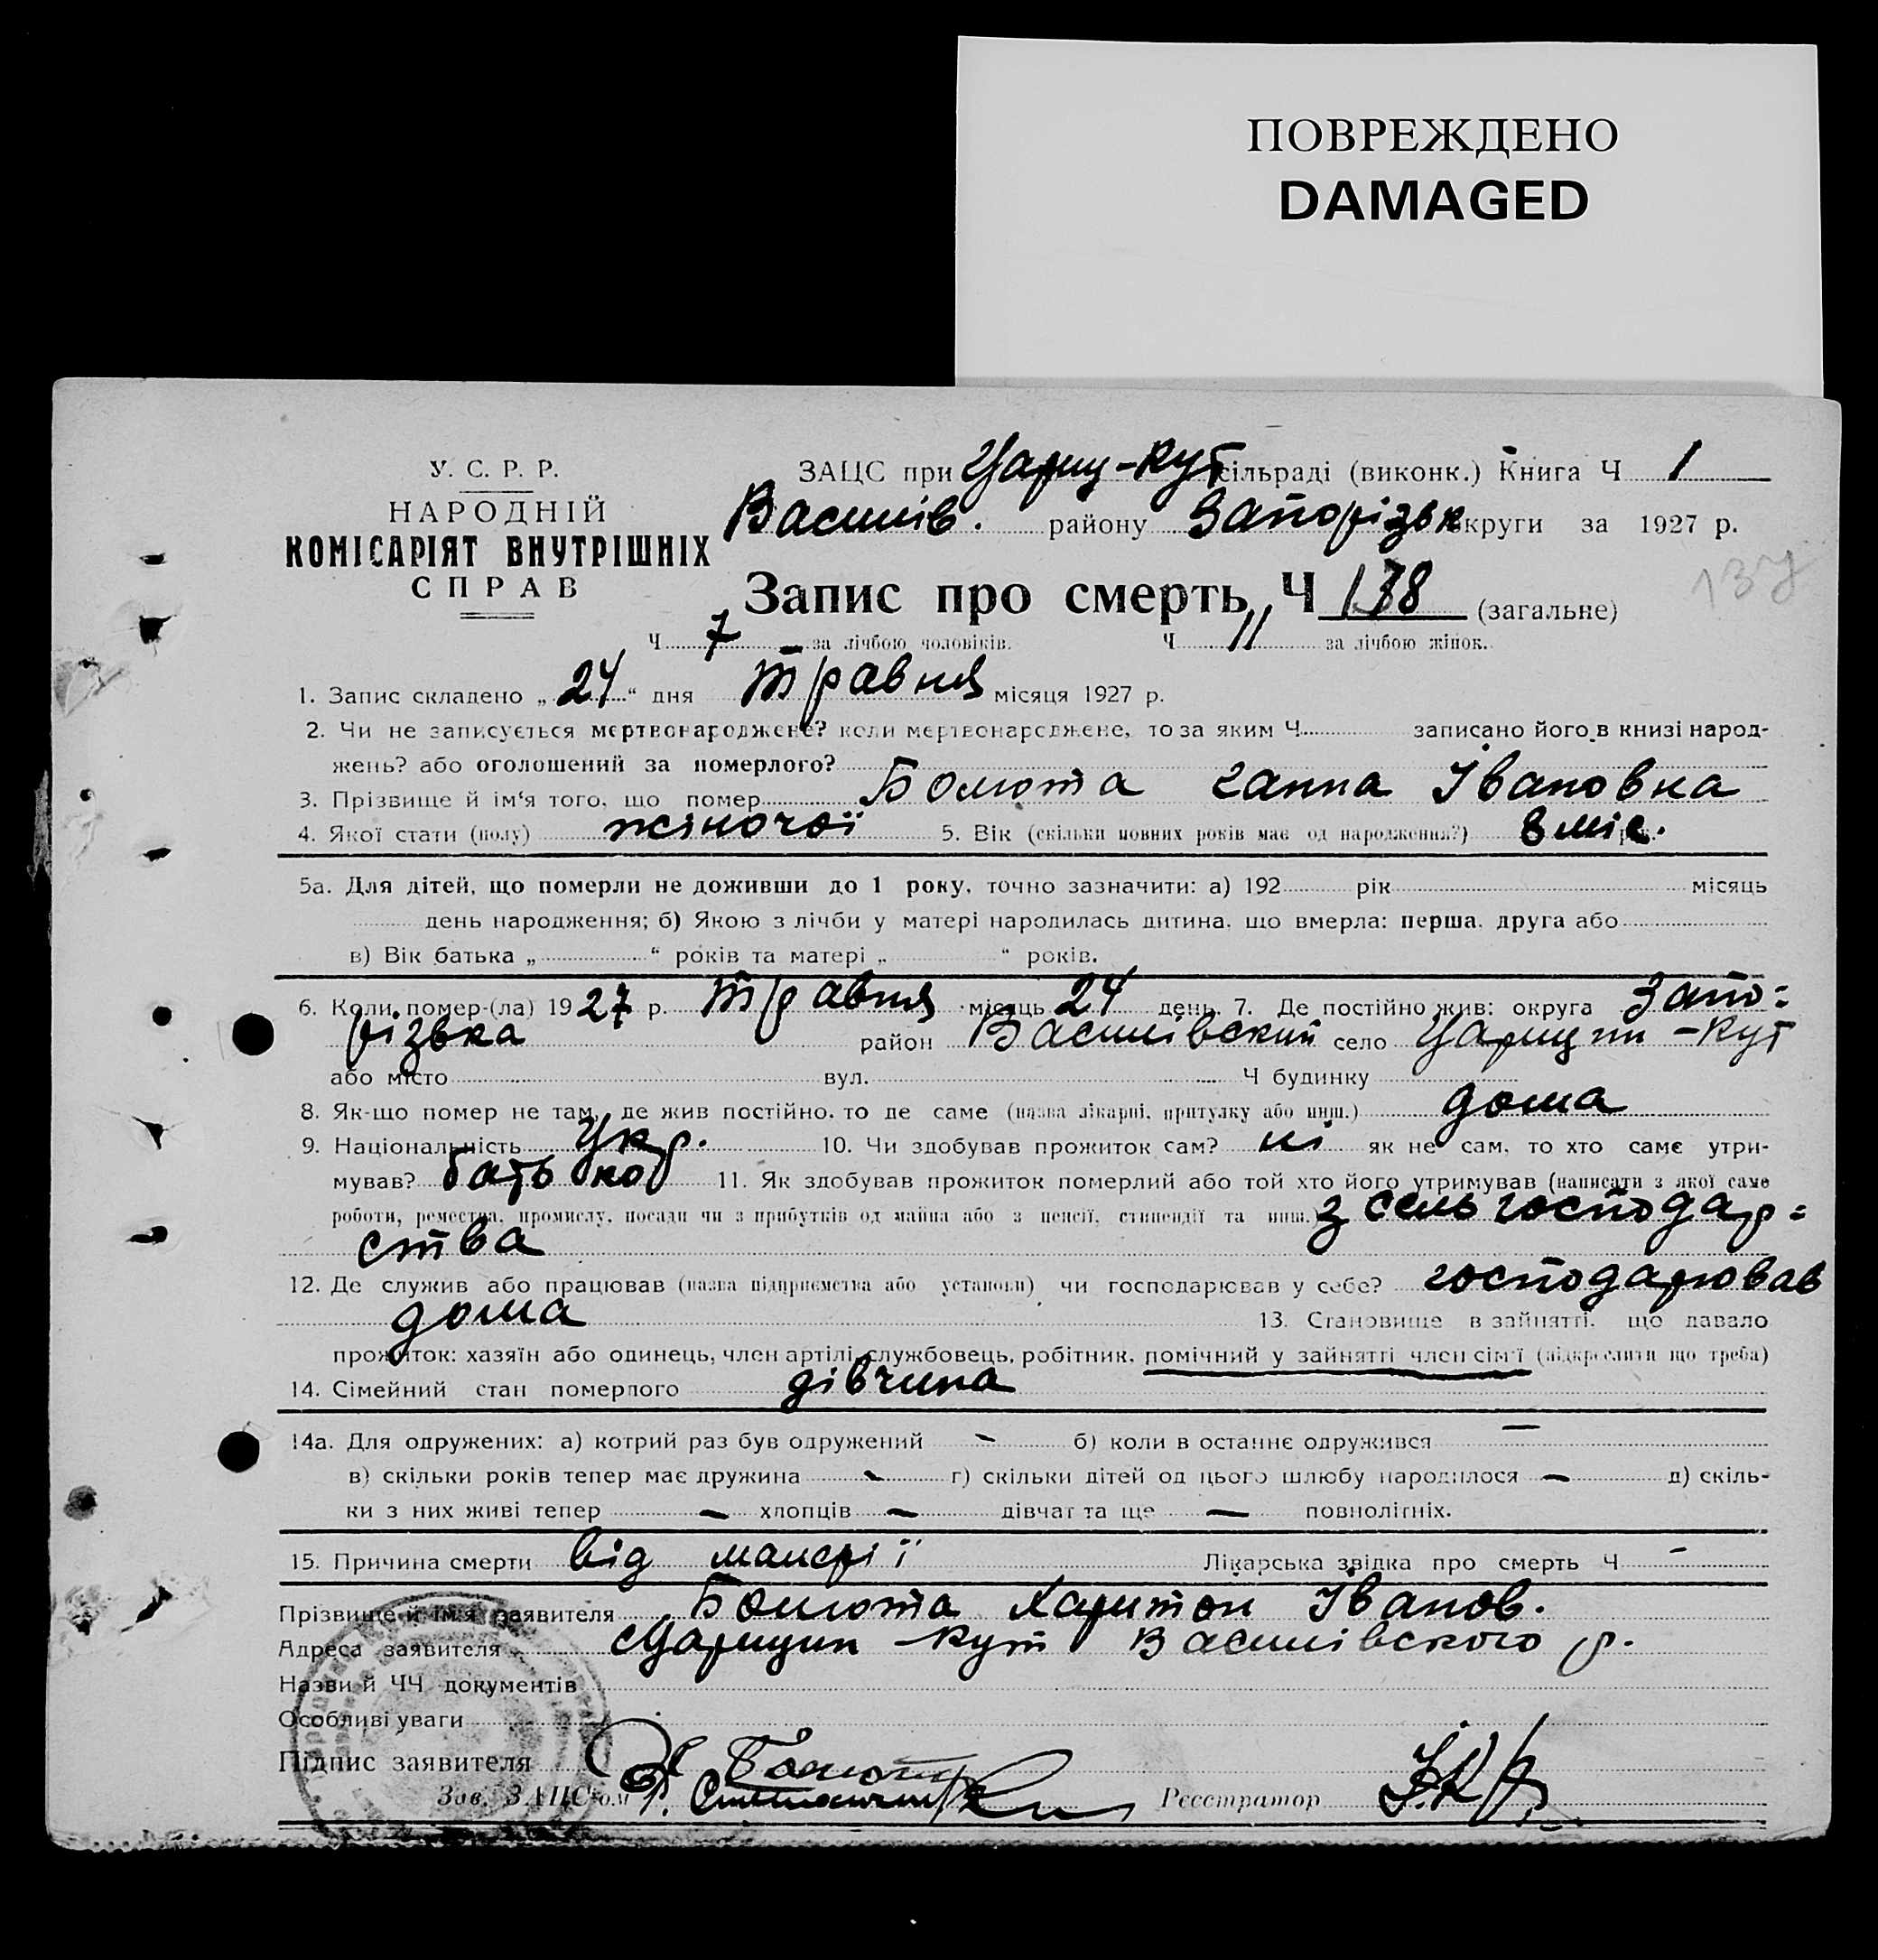 ПОВРЕЖДЕНО
DAMAGED
У. С. Р. Р.
НАРОДНІЙ
КОМІСАРІЯТ ВНУТРІШНІХ
СПРАВ
ЗАЦС при Цариц-Кут сільраді (виконк.) Книга Ч 1
Василів. району Запорізьк округи за 1927 р.
137
Запис про смерть Ч 138 (загальне)
Ч 7 за лічбою чоловіків. Ч 11 за лічбою жінок.
1. Запис складено „24“ дня травня місяця 1927 р.
2. Чи не записується мертвонароджене? коли мертвонароджене, то за яким Ч записано його в книзі народ-
жень? або оголошений за померлого?
3. Прізвище й ім'я того, що помер Болюта Ганна Івановна
4. Якої стати (полу) жіночої 5. Вік (скільки повних років має од народження?) 8 міс.
5а. Для дітей, що померли не доживши до 1 року, точно зазначити: а) 192 рік місяць
день народження; б) Якою з лічби у матері народилась дитина, що вмерла: перша, друга або
в) Вік батька „ “ років та матері „ “ років.
6. Коли помер-(ла) 1927 р. травня місяць 24 день. 7. Де постійно жив: округа Запо=
різька район Василівский село Царицин-Кут
або місто вул. Ч будинку
8. Як-що помер не там, де жив постійно, то де саме (назва лікарні, притулку або инш.) дома
9. Національність Укр. 10. Чи здобував прожиток сам? ні як не сам, то хто саме утри-
мував? батько 11. Як здобував прожиток померлий або той хто його утримував (написати з якої саме
роботи, ремества, промислу, посади чи з прибутків од майна або з пенсії, стипендії та инш.) з сель господар=
ства
12. Де служив або працював (назва підприємства або установи) чи господарював у себе? господарював
дома 13. Становище в зайнятті, що давало
прожиток: хазяїн або одинець, член артілі, службовець, робітник, помічний у зайнятті член сім'ї (підкреслити що треба)
14. Сімейний стан померлого дівчина
14а. Для одружених: а) котрий раз був одружений - б) коли в останнє одружився —
в) скільки років тепер має дружина - г) скільки дітей од цього шлюбу народилося — д) скіль-
ки з них живі тепер — хлопців — дівчат та ще — повнолітніх.
15. Причина смерти від малярії Лікарська звідка про смерть Ч -
Прізвище й ім'я заявителя Болюта Харитон Іванов.
Адреса заявителя Царицин-Кут Василівского р.
Назви й ЧЧ документів
Особливі уваги
Підпис заявителя Болюта
Зав. ЗАЦС'ом Реєстратор